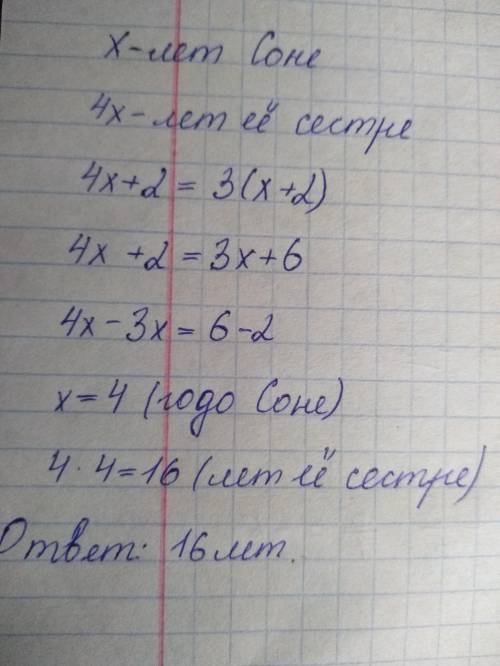 х-лет Соне
4х-лет её сестре
4х+2 = 3(х+2)
4х +2 = 3х+6
4х-3х = 6-2
х=4 (годо Соне)
4·4=16 (лет её сестре)
Ответ: 16 лет.